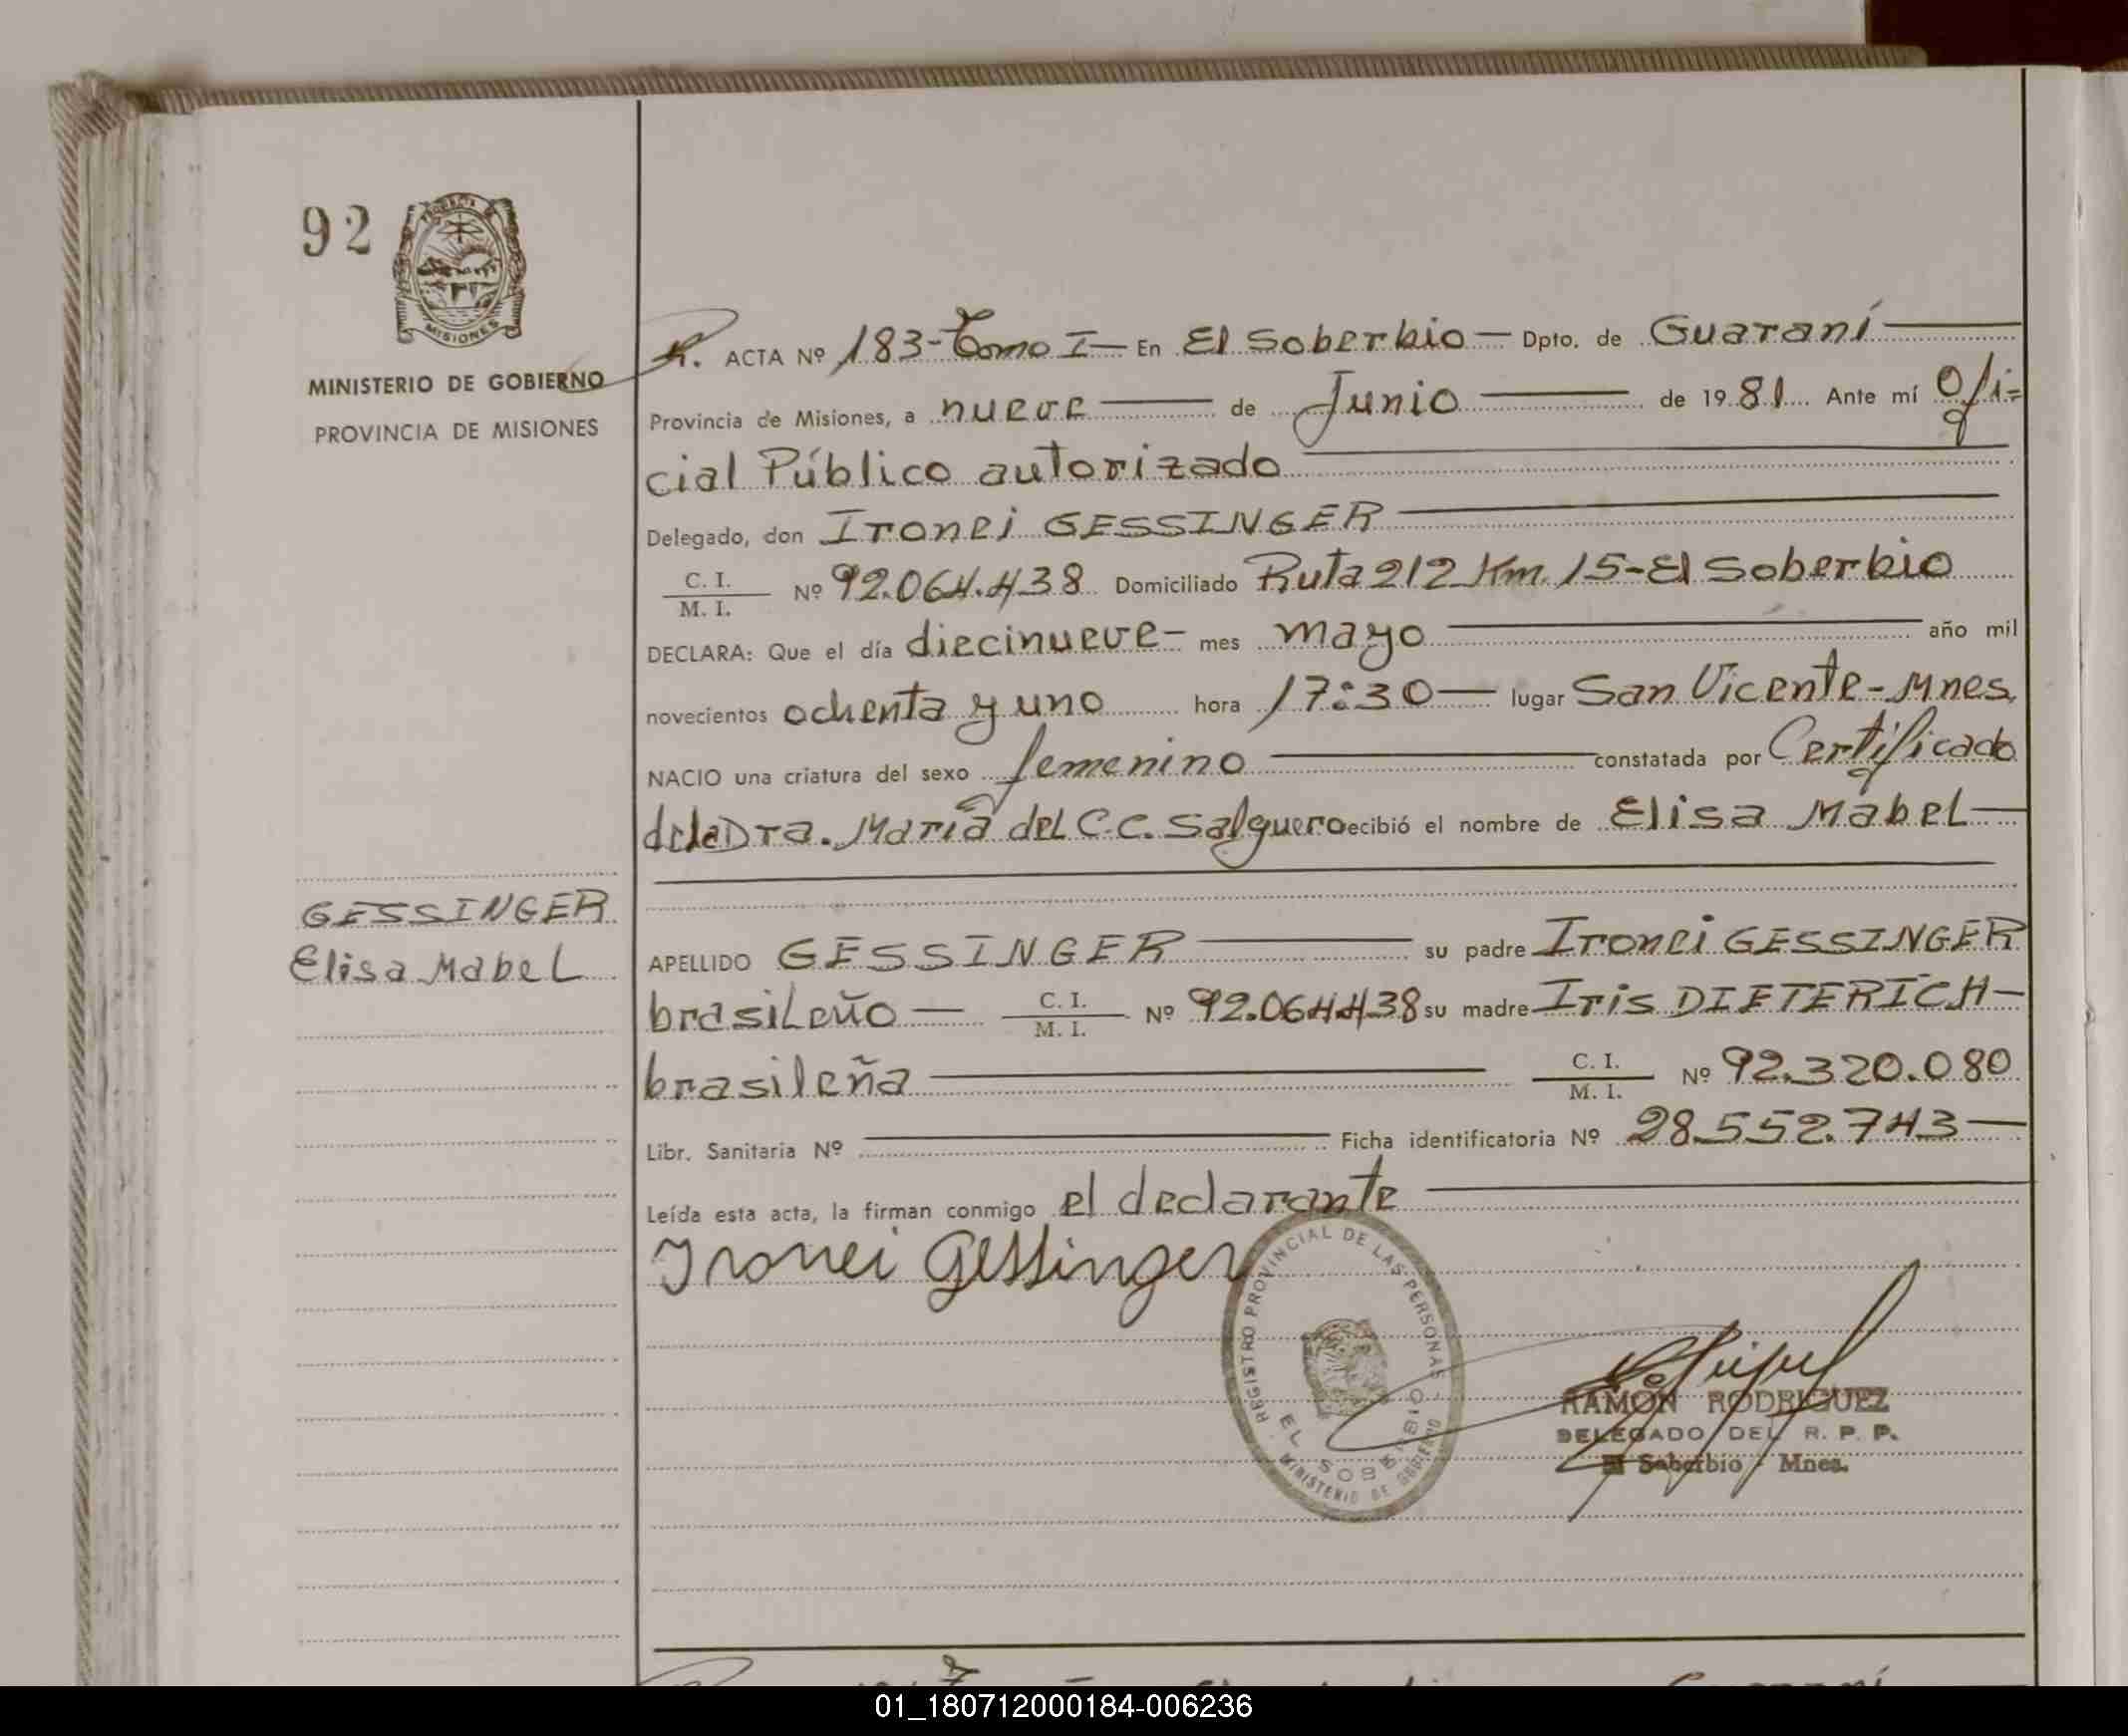 92
PROVINCIA DE
MISIONES
MINISTERIO DE GOBIERNO
PROVINCIA DE MISIONES
R. ACTA Nº 183-Tomo I— En El Soberbio— Dpto. de Guaraní
Provincia de Misiones, a nueve de Junio de 1981. Ante mí Ofi=
cial Público autorizado
Delegado, don Ironei GESSINGER
C. I.
M. I. Nº 92.064.438 Domiciliado Ruta 212 Km. 15-El Soberbio
DECLARA: Que el día diecinueve- mes mayo año mil
novecientos ochenta y uno hora 17:30— lugar San Vicente-Mnes,
NACIO una criatura del sexo femenino constatada por Certificado
de la Dra. María del C.C. Salguero ecibió el nombre de Elisa Mabel—
GESSINGER
Elisa Mabel
APELLIDO GESSINGER su padre Ironei GESSINGER
brasileño— C. I.
M. I. Nº 92.064438 su madre Iris DIETERICH—
brasileña C. I.
M. I. Nº 92.320.080
Libr. Sanitaria Nº Ficha identificatoria Nº 28.552.743—
Leída esta acta, la firman conmigo el declarante
Ironei Gessinger
REGISTRO PROVINCIAL DE LAS PERSONAS
EL SOBERBIO
MINISTERIO DE GOBIERNO
RAMON RODRIGUEZ
DELEGADO DEL R. P. P.
El Soberbio - Mnes.
01_180712000184-006236